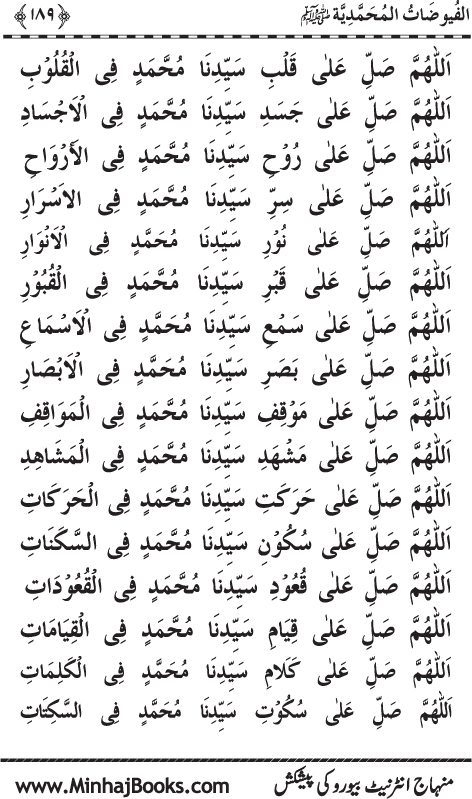 الفُیوضَاتُ المُحَمَّدِیَّة ﷺ ﴿۱۸۹﴾
اَللّٰهُمَّ صَلِّ عَلٰى قَلْبِ سَيِّدِنَا مُحَمَّدٍ فِى الْقُلُوْبِ
اَللّٰهُمَّ صَلِّ عَلٰى جَسَدِ سَيِّدِنَا مُحَمَّدٍ فِى الْاَجْسَادِ
اَللّٰهُمَّ صَلِّ عَلٰى رُوْحِ سَيِّدِنَا مُحَمَّدٍ فِى الْأَرْوَاحِ
اَللّٰهُمَّ صَلِّ عَلٰى سِرِّ سَيِّدِنَا مُحَمَّدٍ فِى الْاَسْرَارِ
اَللّٰهُمَّ صَلِّ عَلٰى نُوْرِ سَيِّدِنَا مُحَمَّدٍ فِى الْاَنْوَارِ
اَللّٰهُمَّ صَلِّ عَلٰى قَبْرِ سَيِّدِنَا مُحَمَّدٍ فِى الْقُبُوْرِ
اَللّٰهُمَّ صَلِّ عَلٰى سَمْعِ سَيِّدِنَا مُحَمَّدٍ فِى الْاَسْمَاعِ
اَللّٰهُمَّ صَلِّ عَلٰى بَصَرِ سَيِّدِنَا مُحَمَّدٍ فِى الْاَبْصَارِ
اَللّٰهُمَّ صَلِّ عَلٰى مَوْقِفِ سَيِّدِنَا مُحَمَّدٍ فِى الْمَوَاقِفِ
اَللّٰهُمَّ صَلِّ عَلٰى مَشْهَدِ سَيِّدِنَا مُحَمَّدٍ فِى الْمَشَاهِدِ
اَللّٰهُمَّ صَلِّ عَلٰى حَرَكَتِ سَيِّدِنَا مُحَمَّدٍ فِى الْحَرَكَاتِ
اَللّٰهُمَّ صَلِّ عَلٰى سُكُوْنِ سَيِّدِنَا مُحَمَّدٍ فِى السَّكَنَاتِ
اَللّٰهُمَّ صَلِّ عَلٰى قُعُوْدِ سَيِّدِنَا مُحَمَّدٍ فِى الْقُعُوْدَاتِ
اَللّٰهُمَّ صَلِّ عَلٰى قِيَامِ سَيِّدِنَا مُحَمَّدٍ فِى الْقِيَامَاتِ
اَللّٰهُمَّ صَلِّ عَلٰى كَلَامِ سَيِّدِنَا مُحَمَّدٍ فِى الْكَلِمَاتِ
اَللّٰهُمَّ صَلِّ عَلٰى سُكُوْتِ سَيِّدِنَا مُحَمَّدٍ فِى السَّكِتَاتِ
منہاج انٹرنیٹ بیورو کی پیشکش www.MinhajBooks.com